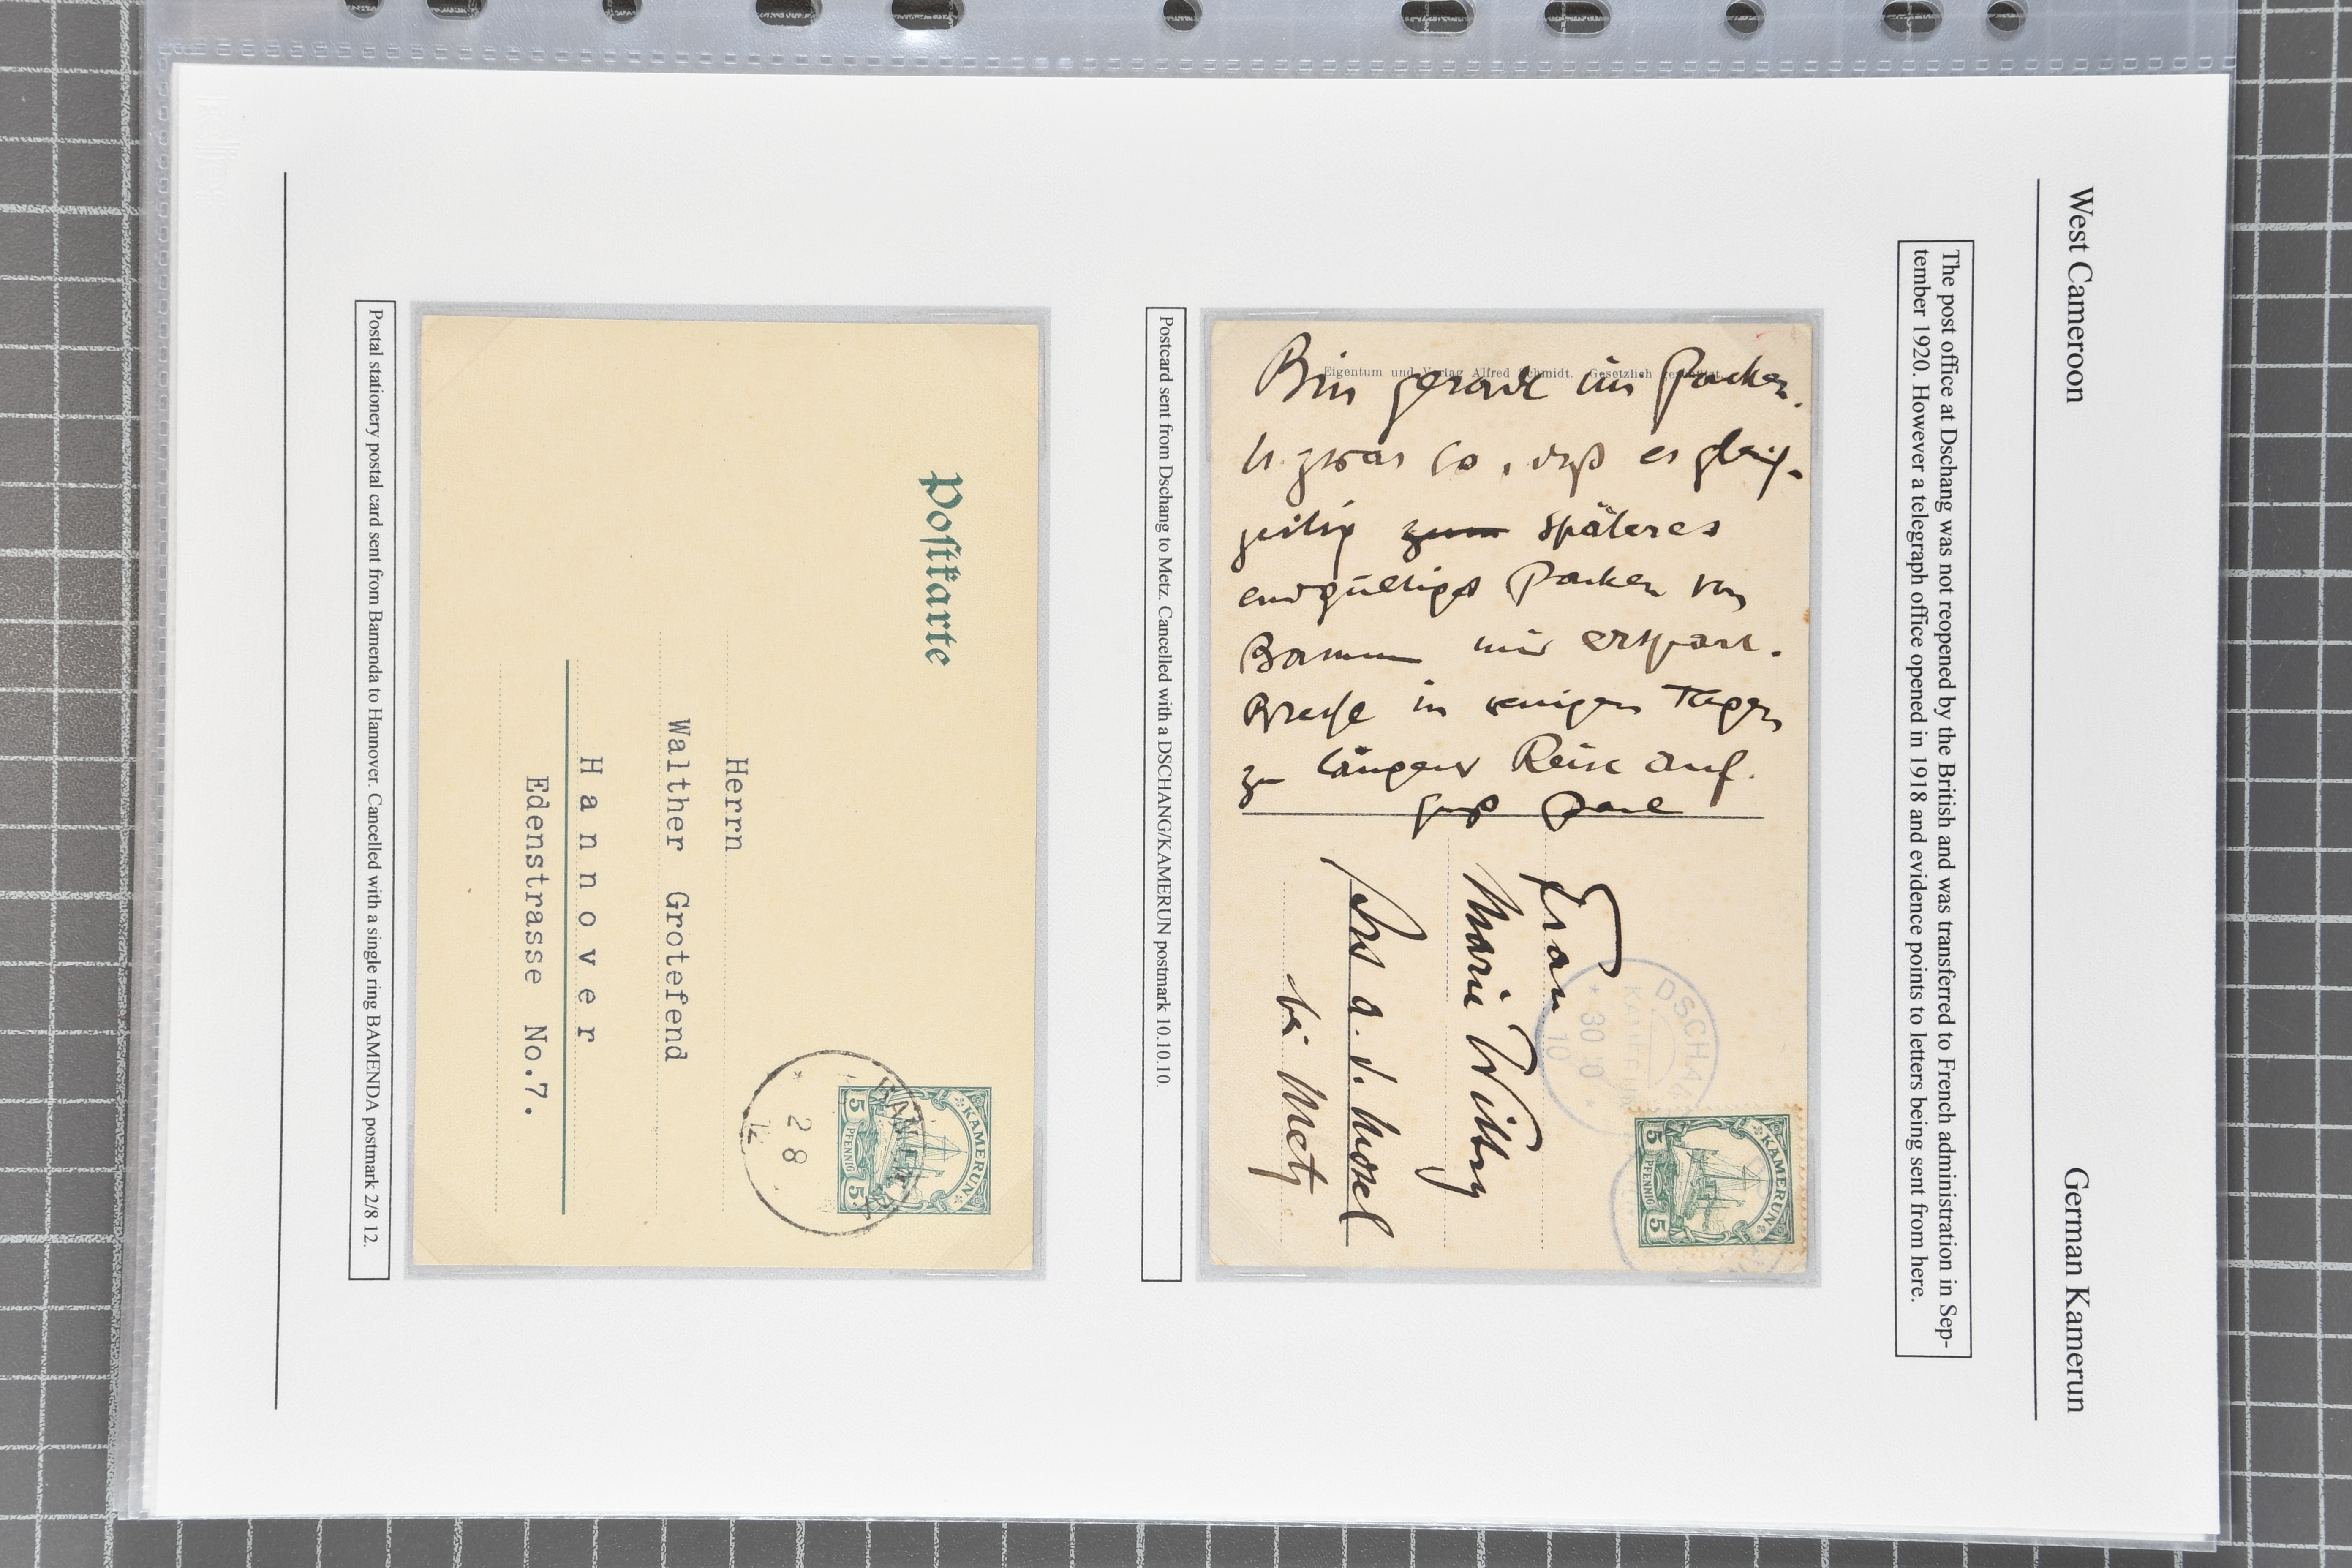 West Cameroon
German Kamerun
The post office at Dschang was not reopened by the British and was transferred to French administration in Sep-
tember 1920. However a telegraph office opened in 1918 and evidence points to letters being sent from here.
Eigentum und Verlag Alfred Schmidt. Gesetzlich
Bin gerade im Packen.
u. zwar so, daß es gleich-
zeitig zum späteres
endgültiges Packen von
mir erspart.
Breche in wenigen Tagen
zu längerer Reise auf.
Gruß Paul
Frau
Marie
Ars a. d. Mosel
bei Metz
DSCHANG
KAMERUN
10
KAMERUN
5 PFENNIG 5
Postcard sent from Dschang to Metz. Cancelled with a DSCHANG/KAMERUN postmark 10.10.10.
Postkarte
Herrn
Walther Grotefend
Hannover
Edenstrasse No.7.
KAMERUN
5 PFENNIG 5
BAMENDA
2 8
12
Postal stationery postal card sent from Bamenda to Hannover. Cancelled with a single ring BAMENDA postmark 2/8 12.